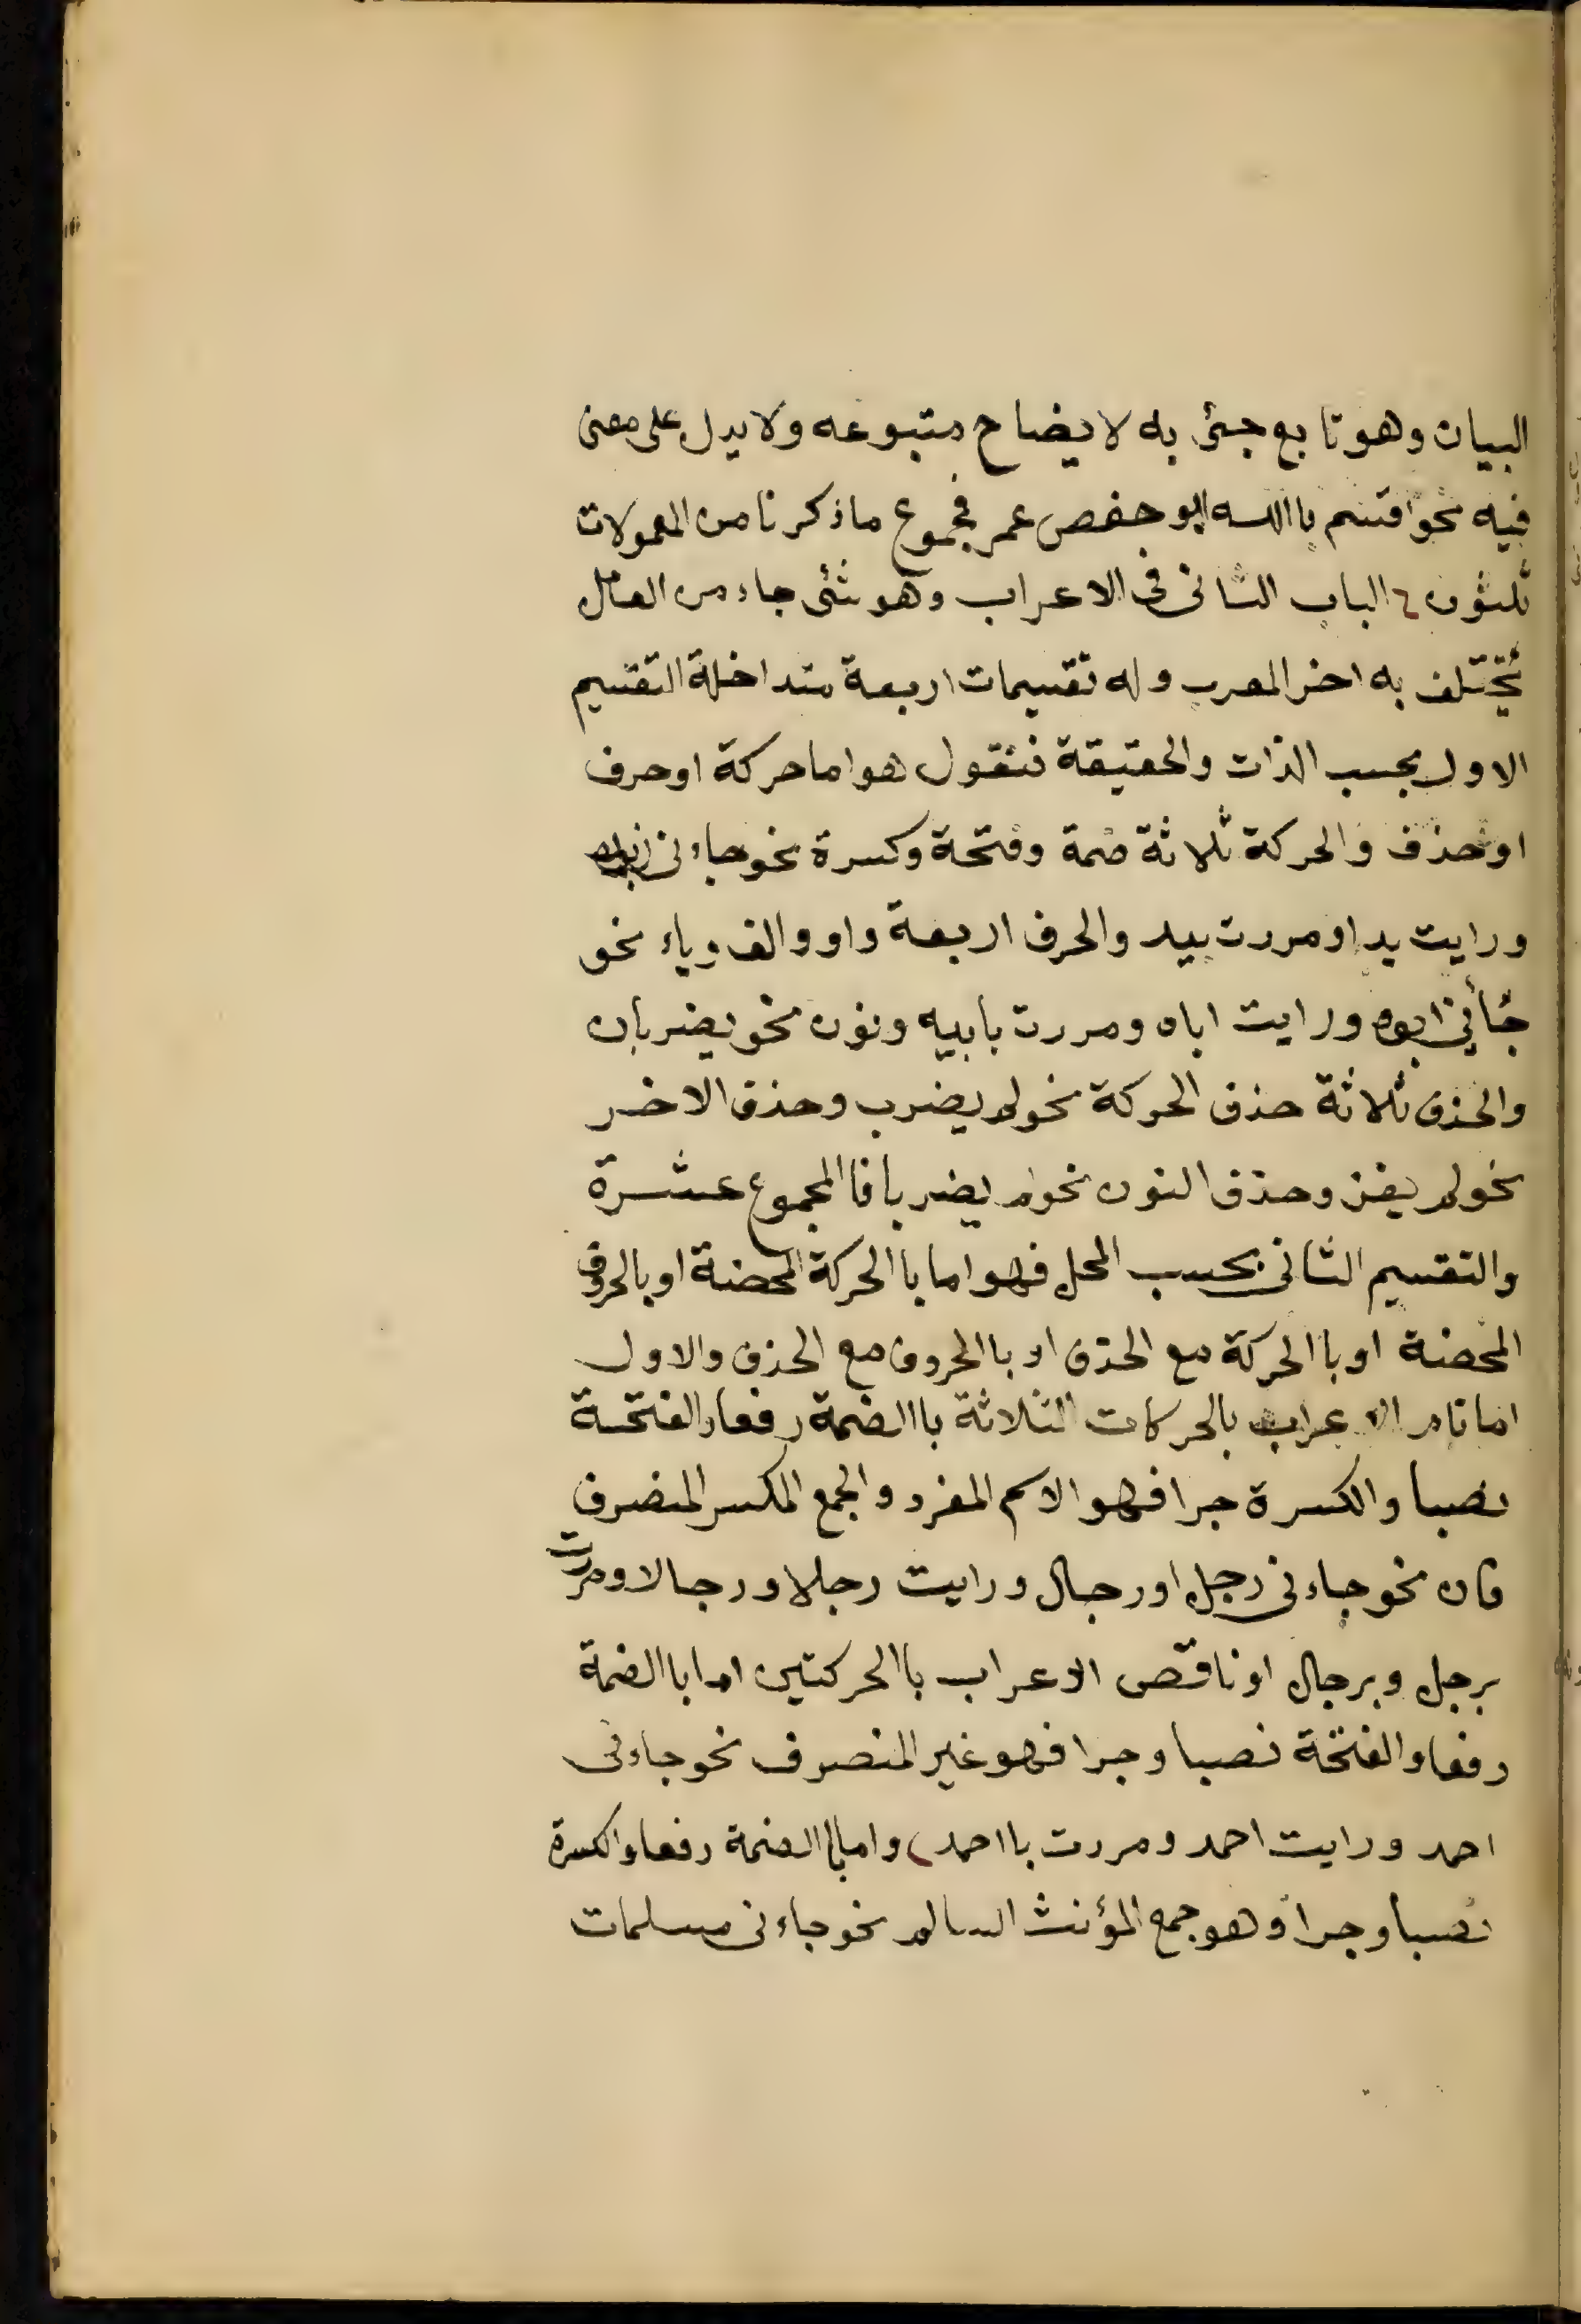 البيان وهو تابع جئ به لايضاح متبوعه ولا يدل على معنى
فيه نحو اقسم باالله ابو حفص عمر فمجموع ماذكرنا من المعمولات
ثلثون الباب الثانى فى الاعراب وهو شئى جاء من العامل
يختلف به اخر المعرب وله تقسيمات اربعة متداخلة التقسيم
الاول بحسب الذات والحقيقة فنقول هو اما حركة او حرف
او حذف والحركة ثلاثة ضمة وفتحة وكسرة نحو جاءنى
ورايت يدا ومررت بيد والحرف اربعة واو والف وياء نحو
جأني ابوه ورايت اباه ومررت بابيه ونون نحو يضربان
والحذف ثلاثة حذف الحركة نحو لم يضرب وحذف الاخر
نحو لم يغز وحذف النون نحو لم يضربا فا المجموع عشرة
والتقسيم الثانى بحسب المحل فهو اما باالحركة المحضة او بالحروف
المحضة او باالحركة مع الحذف او باالحروف مع الحذف والاول
اما تام الاعراب بالحركات الثلاثة باالضمة رفعا والفتحة
نصبا والكسرة جرا فهو الاسم المفرد والجمع المكسر المنصرف
فان نحو جاءنى رجل او رجال ورايت رجلا ورجالا ومررت
برجل وبرجال او ناقص الاعراب باالحركتين اما باالضمة
رفعا والفتحة نصبا وجرا فهو غير المنصرف نحو جاءنى
احمد ورايت احمد ومررت بااحمد واما باالضمة رفعا والكسرة
نصبا وجرا وهو جمع المؤنث السالم نحو جاءنى مسلمات